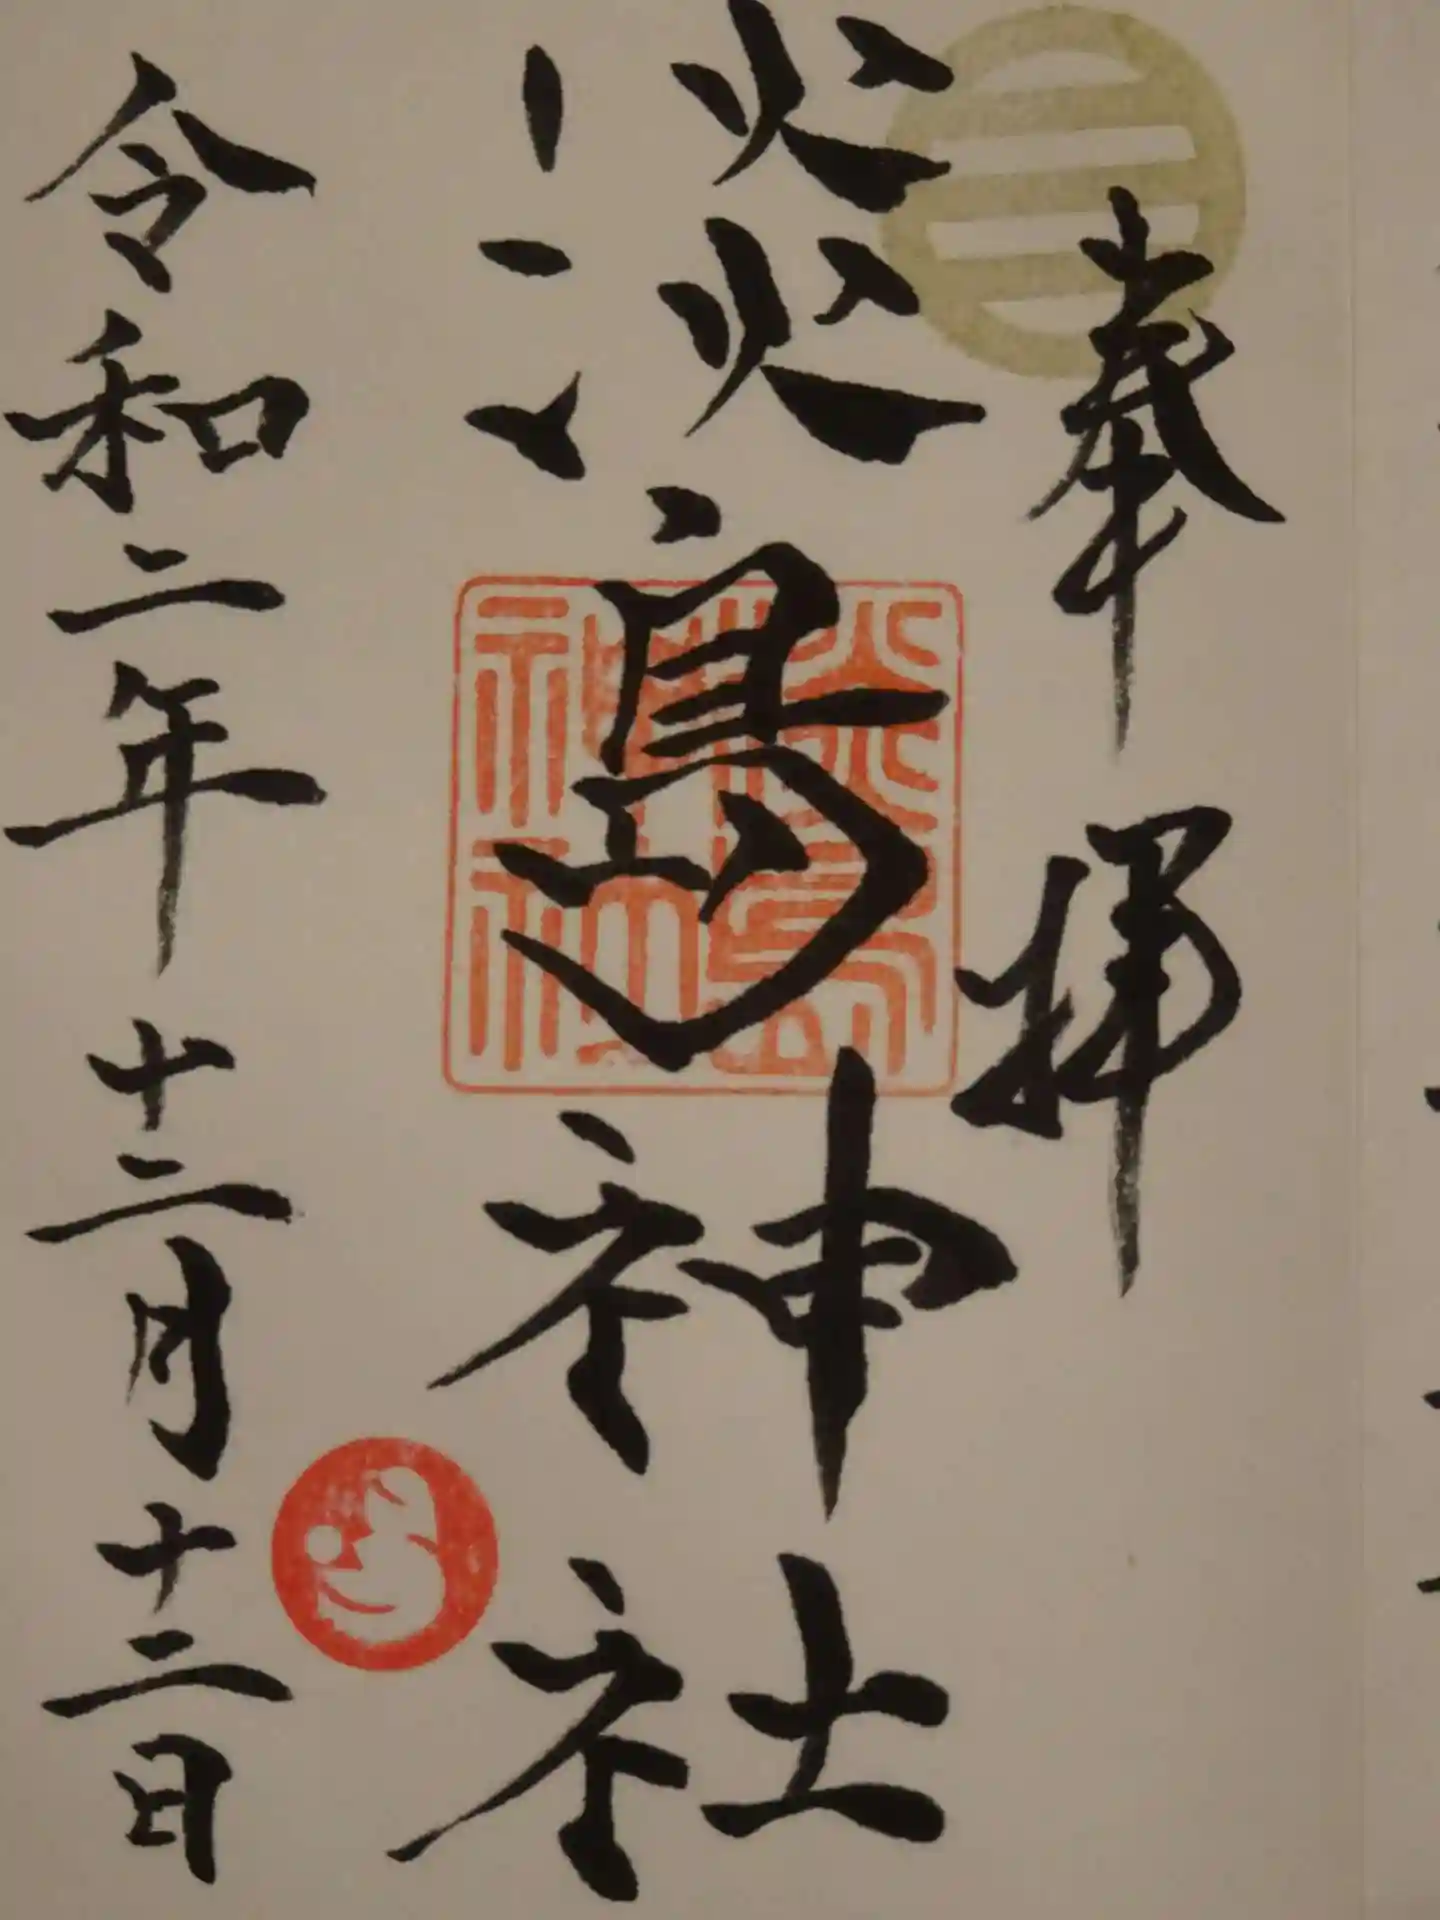 奉拝
淡嶋神社
淡島神社
令和二年十二月十二日